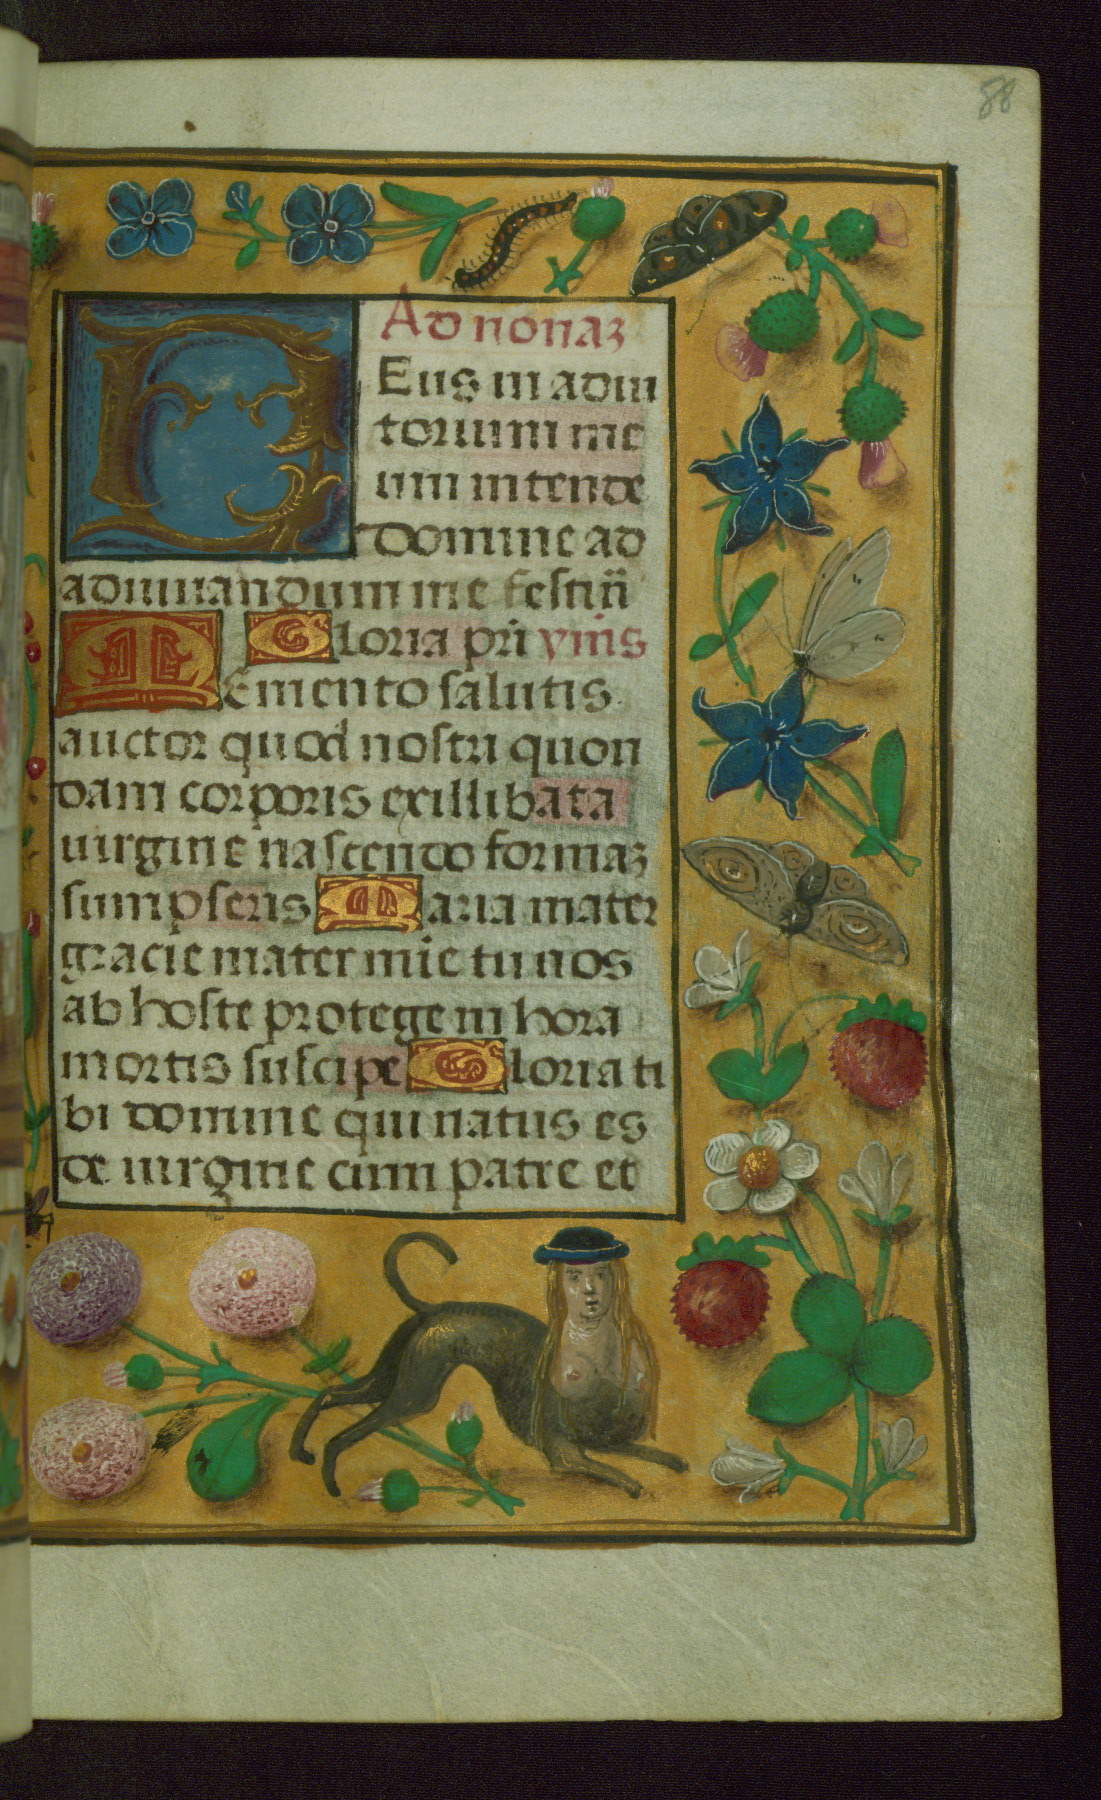 88
Ad nonaʒ
Deus in adiu
torium me
um intende
Domine ad
adiuuandum me festin̄
Gloria pr̄i ymis
Memento salutis
auctor quod nostri quon
dam corporis exillibata
uirgine nascendo formaʒ
sumpseris Maria mater
gracie mater mīe tu nos
ab hoste protege in hora
mortis suscipe Gloria ti
bi domine qui natus es
de uirgine cum patre et